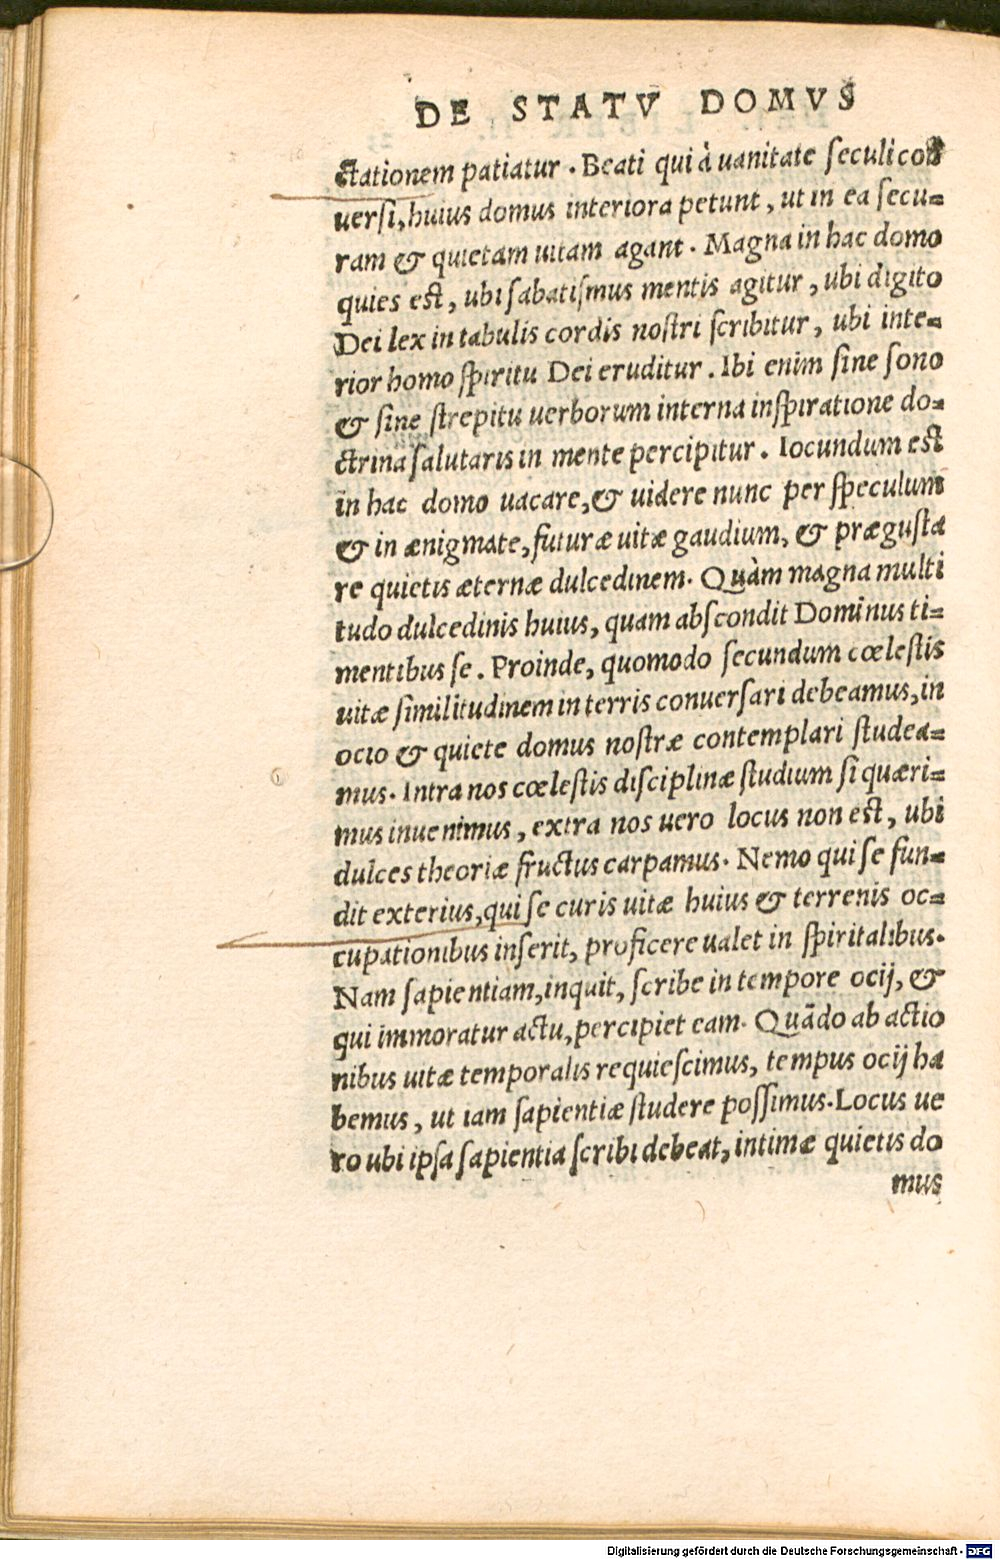 DE STATV DOMVS
ctationem patiatur. Beati qui à uanitate seculi con
uersi, huius domus interiora petunt, ut in ea secu-
ram & quietam uitam agant. Magna in hac domo
quies est, ubi sabatismus mentis agitur, ubi digito
Dei lex in tabulis cordis nostri scribitur, ubi inte-
rior homo spiritu Dei eruditur. Ibi enim sine sono
& sine strepitu uerborum interna inspiratione do-
ctrina salutaris in mente percipitur. Iocundum est
in hac domo uacare, & uidere nunc per speculum
& in ænigmate, futuræ uitæ gaudium, & prægusta
re quietis æternæ dulcedinem. Quàm magna multi
tudo dulcedinis huius, quam abscondit Dominus ti-
mentibus se. Proinde, quomodo secundum cœlestis
uitæ similitudinem in terris conuersari debeamus, in
ocio & quiete domus nostræ contemplari studea-
mus. Intra nos cœlestis disciplinæ studium si quæri-
mus inuenimus, extra nos uero locus non est, ubi
dulces theoriæ fructus carpamus. Nemo qui se fun-
dit exterius, qui se curis uitæ huius & terrenis oc-
cupationibus inserit, proficere ualet in spiritalibus.
Nam sapientiam, inquit, scribe in tempore ocij, &
qui immoratur actu, percipiet eam. Quãdo ab actio
nibus uitæ temporalis requiescimus, tempus ocij ha
bemus, ut iam sapientiæ studere possimus. Locus ue
ro ubi ipsa sapientia scribi debeat, intimæ quietis do
mus
Digitalisierung gefördert durch die Deutsche Forschungsgemeinschaft - DFG